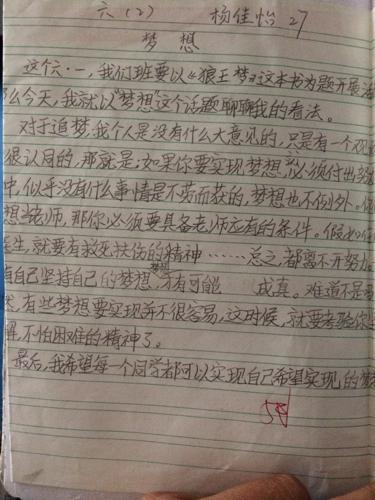 六（2） 杨佳怡 27
梦想
这个六·一，我们班要以《狼王梦》这本书为题开展活
么今天，我就以“梦想”这个话题聊聊我的看法。
对于追梦，我个人是没有什么大意见的，只是有一个观
很认同的，那就是：如果你要实现梦想，必须付出
中，似乎没有什么事情是不劳而获的，梦想也不例外。假
想当老师，那你必须要具备老师应有的条件。假如你
医生，就要有救死扶伤的精神……总之，都离不开努力。
有自己坚持自己的梦想，梦想才有可能 成真。难道不是
然，有些梦想要实现并不很容易，这时候，就要考验你
解，不怕困难的精神了。
最后，我希望每一个同学都可以实现自己希望实现的梦